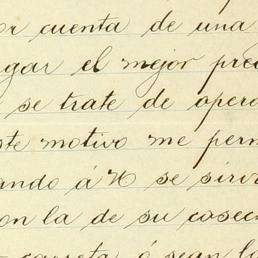 or cuenta de una
gar el mejor prec
se trate de opera
ste motivo me perm
ando á V se sirv
on la de su cosec
carreta, ó sean la